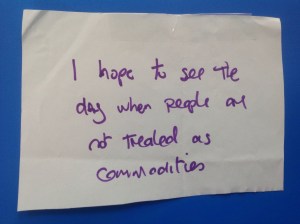 I hope to see the
day when people are
not treated as
commodities